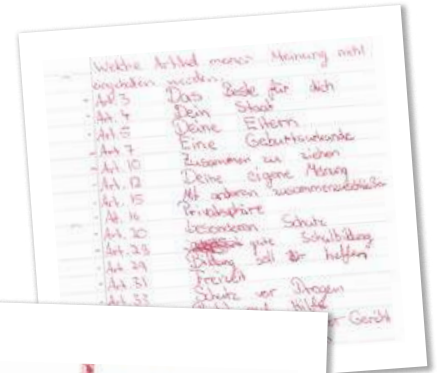 Welche Artikel meiner Meinung nicht
eingehalten werden.
- Art. 3 Das Beste für dich
- Art. 4 Dein Staat
- Art. 5 Deine Eltern
- Art. 7 Eine Geburtsurkunde
- Art. 10 Zusammen zu ziehen
- Art. 12 Deine eigene Meinung
- Art. 15 Mit anderen
- Art. 16 Privatsphäre
- Art. 20 besonderen Schutz
- Art. 28 gute Schulbildung
- Art. 29 Bildung soll dir helfen
- Art. 31 Freizeit
- Art. 33 Schutz vor Drogen
Hilfe
Gericht